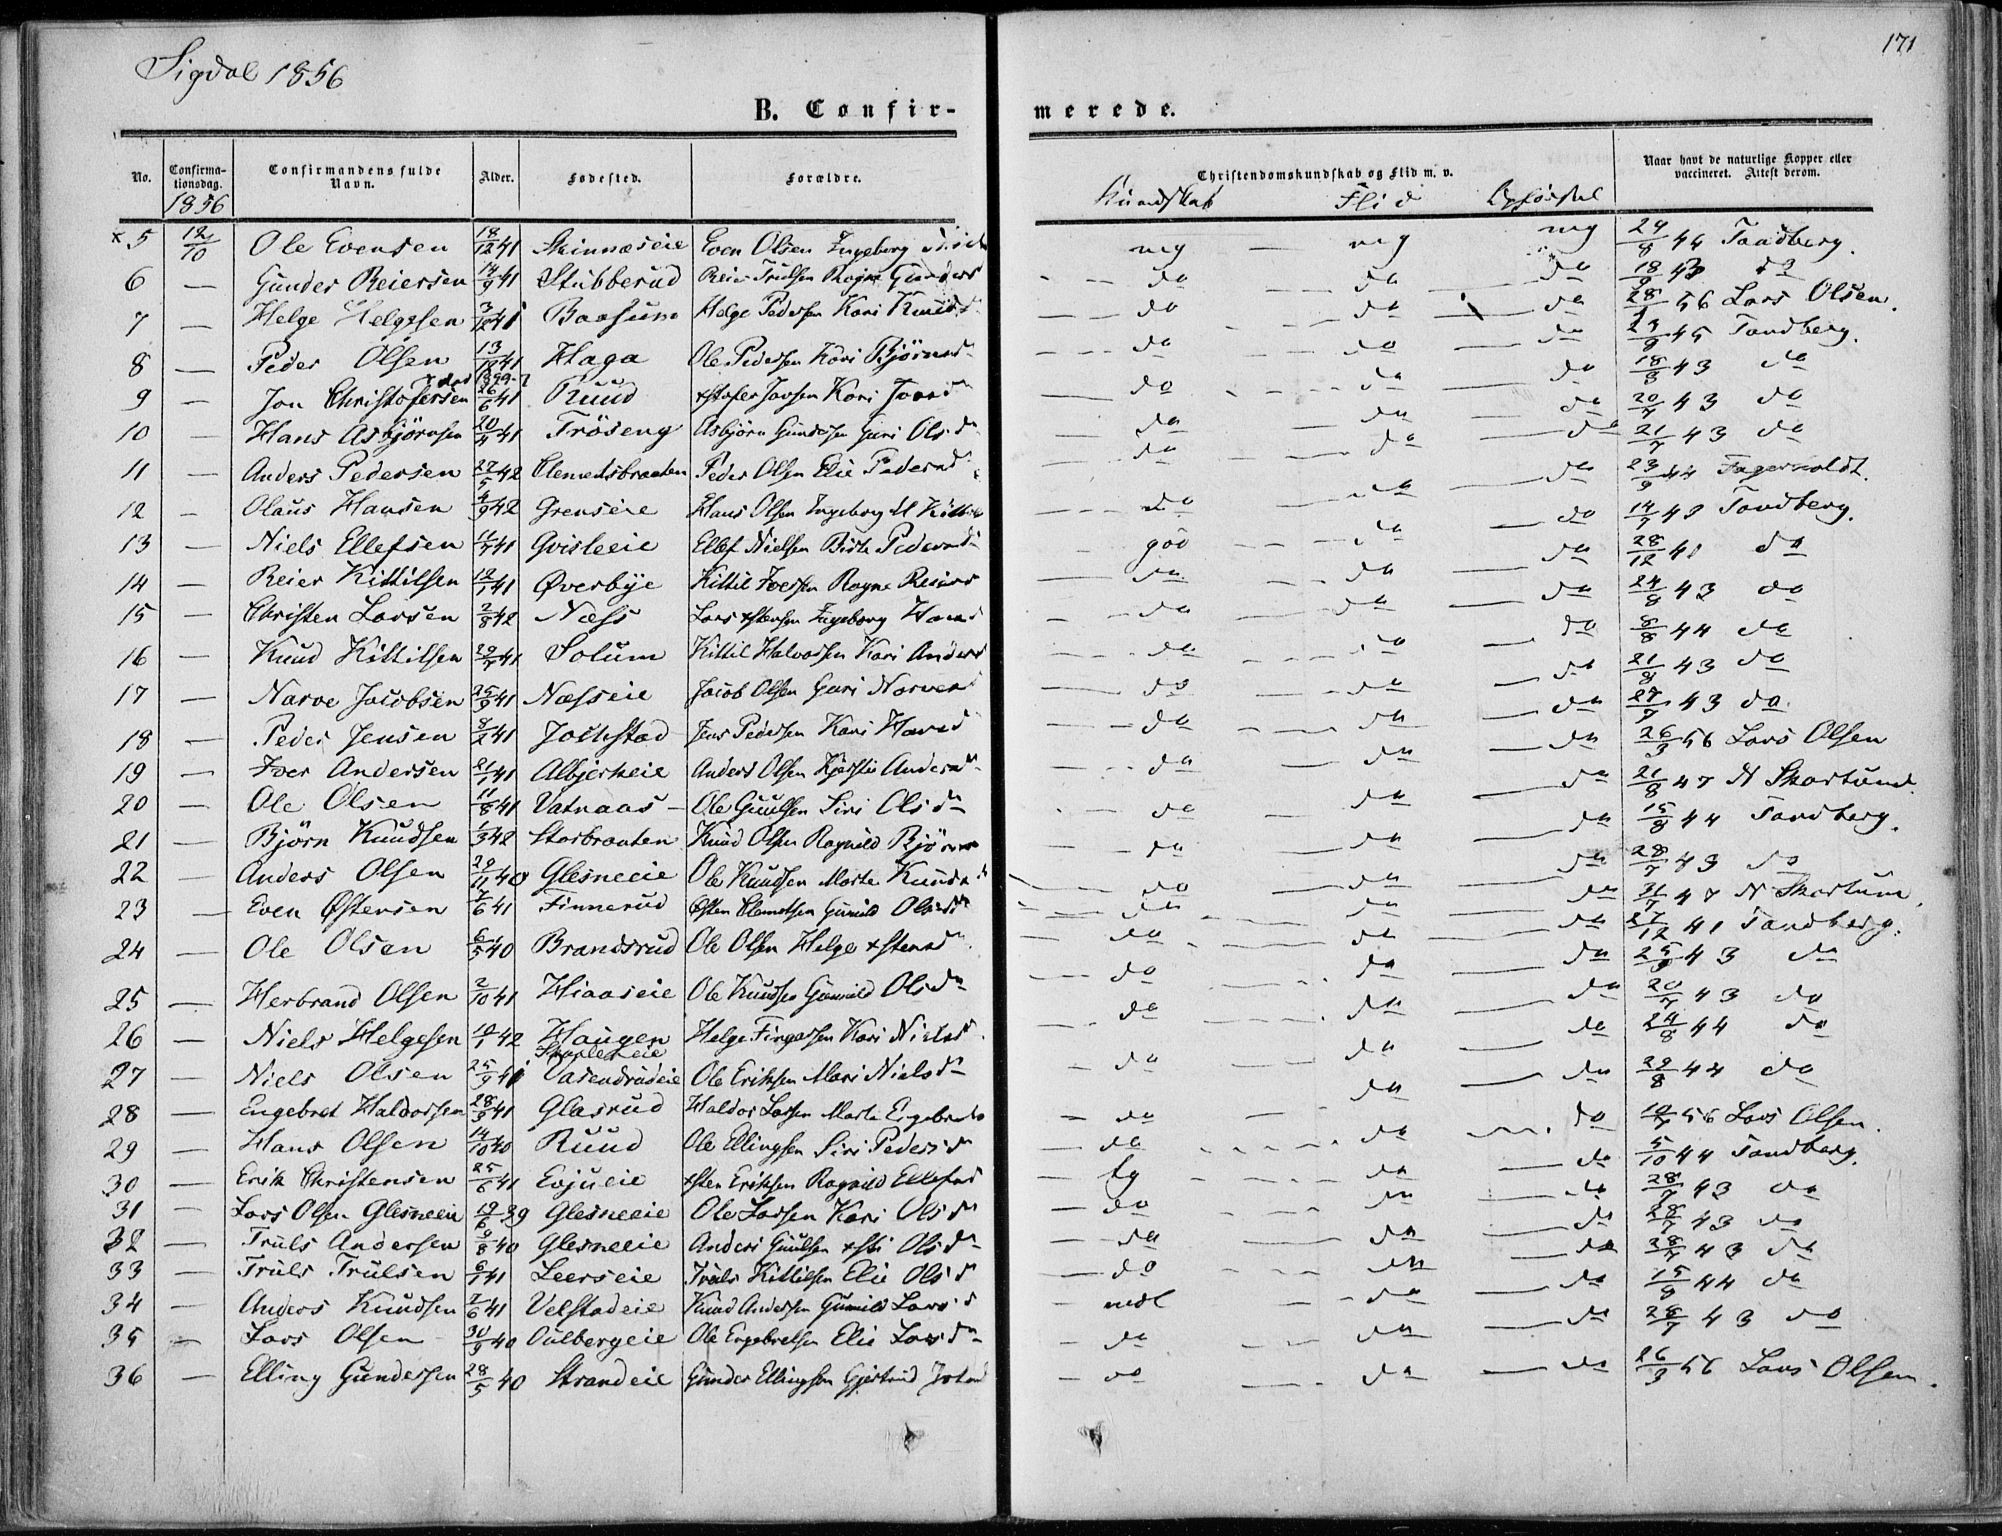 171
Sigdal 1856
B. Confir-merede.
No. Confirma-tionsdag. Confirmandens fulde Navn. Alder. Fødested. Forældre. Christendomskundskab og Flid m. v. Naar havt de naturlige Kopper eller vaccineret. Attest derom.
1856 Kundskab Flid Opførsel
x 5 12/10 Ole Evensen 18/12 41 Skinnæseie Even Olsen Ingeborg mg mg mg 24/8 44 Tandberg.
6 — Gunder Reiersen 14/9 41 Stubberud Reier Trulsen Ragne Gunders do do do 18/9 43 do
7 — Helge Helgesen 3/12 41 Baasum Helge Pedersen Kari Knuds do do do 28/ 56 Lars Olsen.
8 — Peder Olsen 13/12 41 Haga Ole Pedersen Kari Bjørnsd do do do 23/8 45 Tandberg.
9 — Jon Christofersen 26/6 41 Ruud xstofer Jonsen Kari do do do 18/8 43 do
10 — Hans Asbjørnsen 20/4 41 Trøseng Asbjørn Gundersen Guri Olsdr do do do 20/7 43 do
11 — Anders Pedersen 27/5 42 Clemedsbraaten Peder Olsen Elie Pedersd do do do 21/7 43 do
12 — Olaus Hansen 4/9 42 Grenseie Hans Olsen Ingeborg M do do do 23/9 44 Fagerholdt.
13 — Niels Ellefsen 11/7 41 Gvisleeie Ellef Nielsen Birte Pedersd god do do 14/7 43 Tandberg.
14 — Reier Kittilsen 12/1 41 Øverbye Kittil Iversen Ragne Reiers do do do 28/12 41 do
15 — Christen Larsen 2/8 42 Næss Lars xstensen Ingeborg Hans do do do 24/8 43 do
16 — Knud Kittilsen 29/7 41 Solum Kittil Halvorsen Kari Anders do do do 8/8 44 do
17 — Narve Jacobsen 25/9 41 Næsseie Jacob Olsen Guri Narves do do do 21/8 43 do
18 — Peder Jensen 8/2 41 Jens Pedersen Kari Haved do do do 27/7 43 do.
19 — Iver Andersen 21/1 41 Albjerkeie Anders Olsen Kjersti Andersdr do do do 26/3 56 Lars Olsen
20 — Ole Olsen 11/8 41 Vatnaas — Ole Guulsen Siri Olsdr do do do 21/8 47 N Skartund.
21 — Bjørn Knudsen 1/3 42 Storbraaten Knud Olsen Ragnild Bjørns do do do 15/8 44 Tandberg.
22 — Anders Olsen 29/11 40 Glesneeie Ole Knudsen Marte Knuds do do do 28/7 43 do
23 — Even Østensen 4/6 41 Finnerud Østen Clemetsen Gunild Olsdr do do do 31/7 47 N Skartum.
24 — Ole Olsen 6/5 40 Brandsrud Ole Olsen Helge xstensdr do do do 27/12 41 Tandberg.
25 — Herbrand Olsen 2/10 41 Hiaaseie Ole Knudsen Gunnild Olsdr do do do 25/9 43 do
26 — Niels Helgesen 10/1 42 Haugen Helge Fingarsen Kari Nielsd do do do 20/7 43 do
24/8 44 do
27 — Niels Olsen 25/9 41 Vadendrudeie Ole Eriksen Mari Nielsdr do do do 29/8 44 do
28 — Engebret Haldorsen 28/3 41 Glasrud Haldor Larsen Marte Engebrets do do do 10/7 56 Lars Olsen.
29 — Hans Olsen 14/10 40 Ruud Ole Ellingsen Siri Pedersdr do do do 5/10 44 Tandberg.
30 — Erik Christensen 25/6 41 Evjueie xsten Eriksen Ragnild Ellefsd tg do do 28/7 43 do
31 — Lars Olsen Glesneeie 19/6 39 Glesneeie Ole Larsen Kari Olsdr do do do 28/7 43 do
32 — Truls Andersen 9/8 40 Glesneeie Anders Guulsen xsti Olsdr do do do 28/7 43 do
33 — Truls Trulsen 6/1 41 Leerseie Truls Kittilsen Elie Olsd do do do 15/8 44 do
34 — Anders Knudsen 7/6 41 Velstadeie Knud Andersen Gunild Larsd mdl do do 28/7 43 do
35 — Lars Olsen 30/9 40 Oulbergeie Ole Engebretsen Elie Larsdr do do
36 — Elling Gundersen 28/5 40 Strandeie Gunder Ellingsen Gjertrud do do do 26/3 56 Lars Olsen.